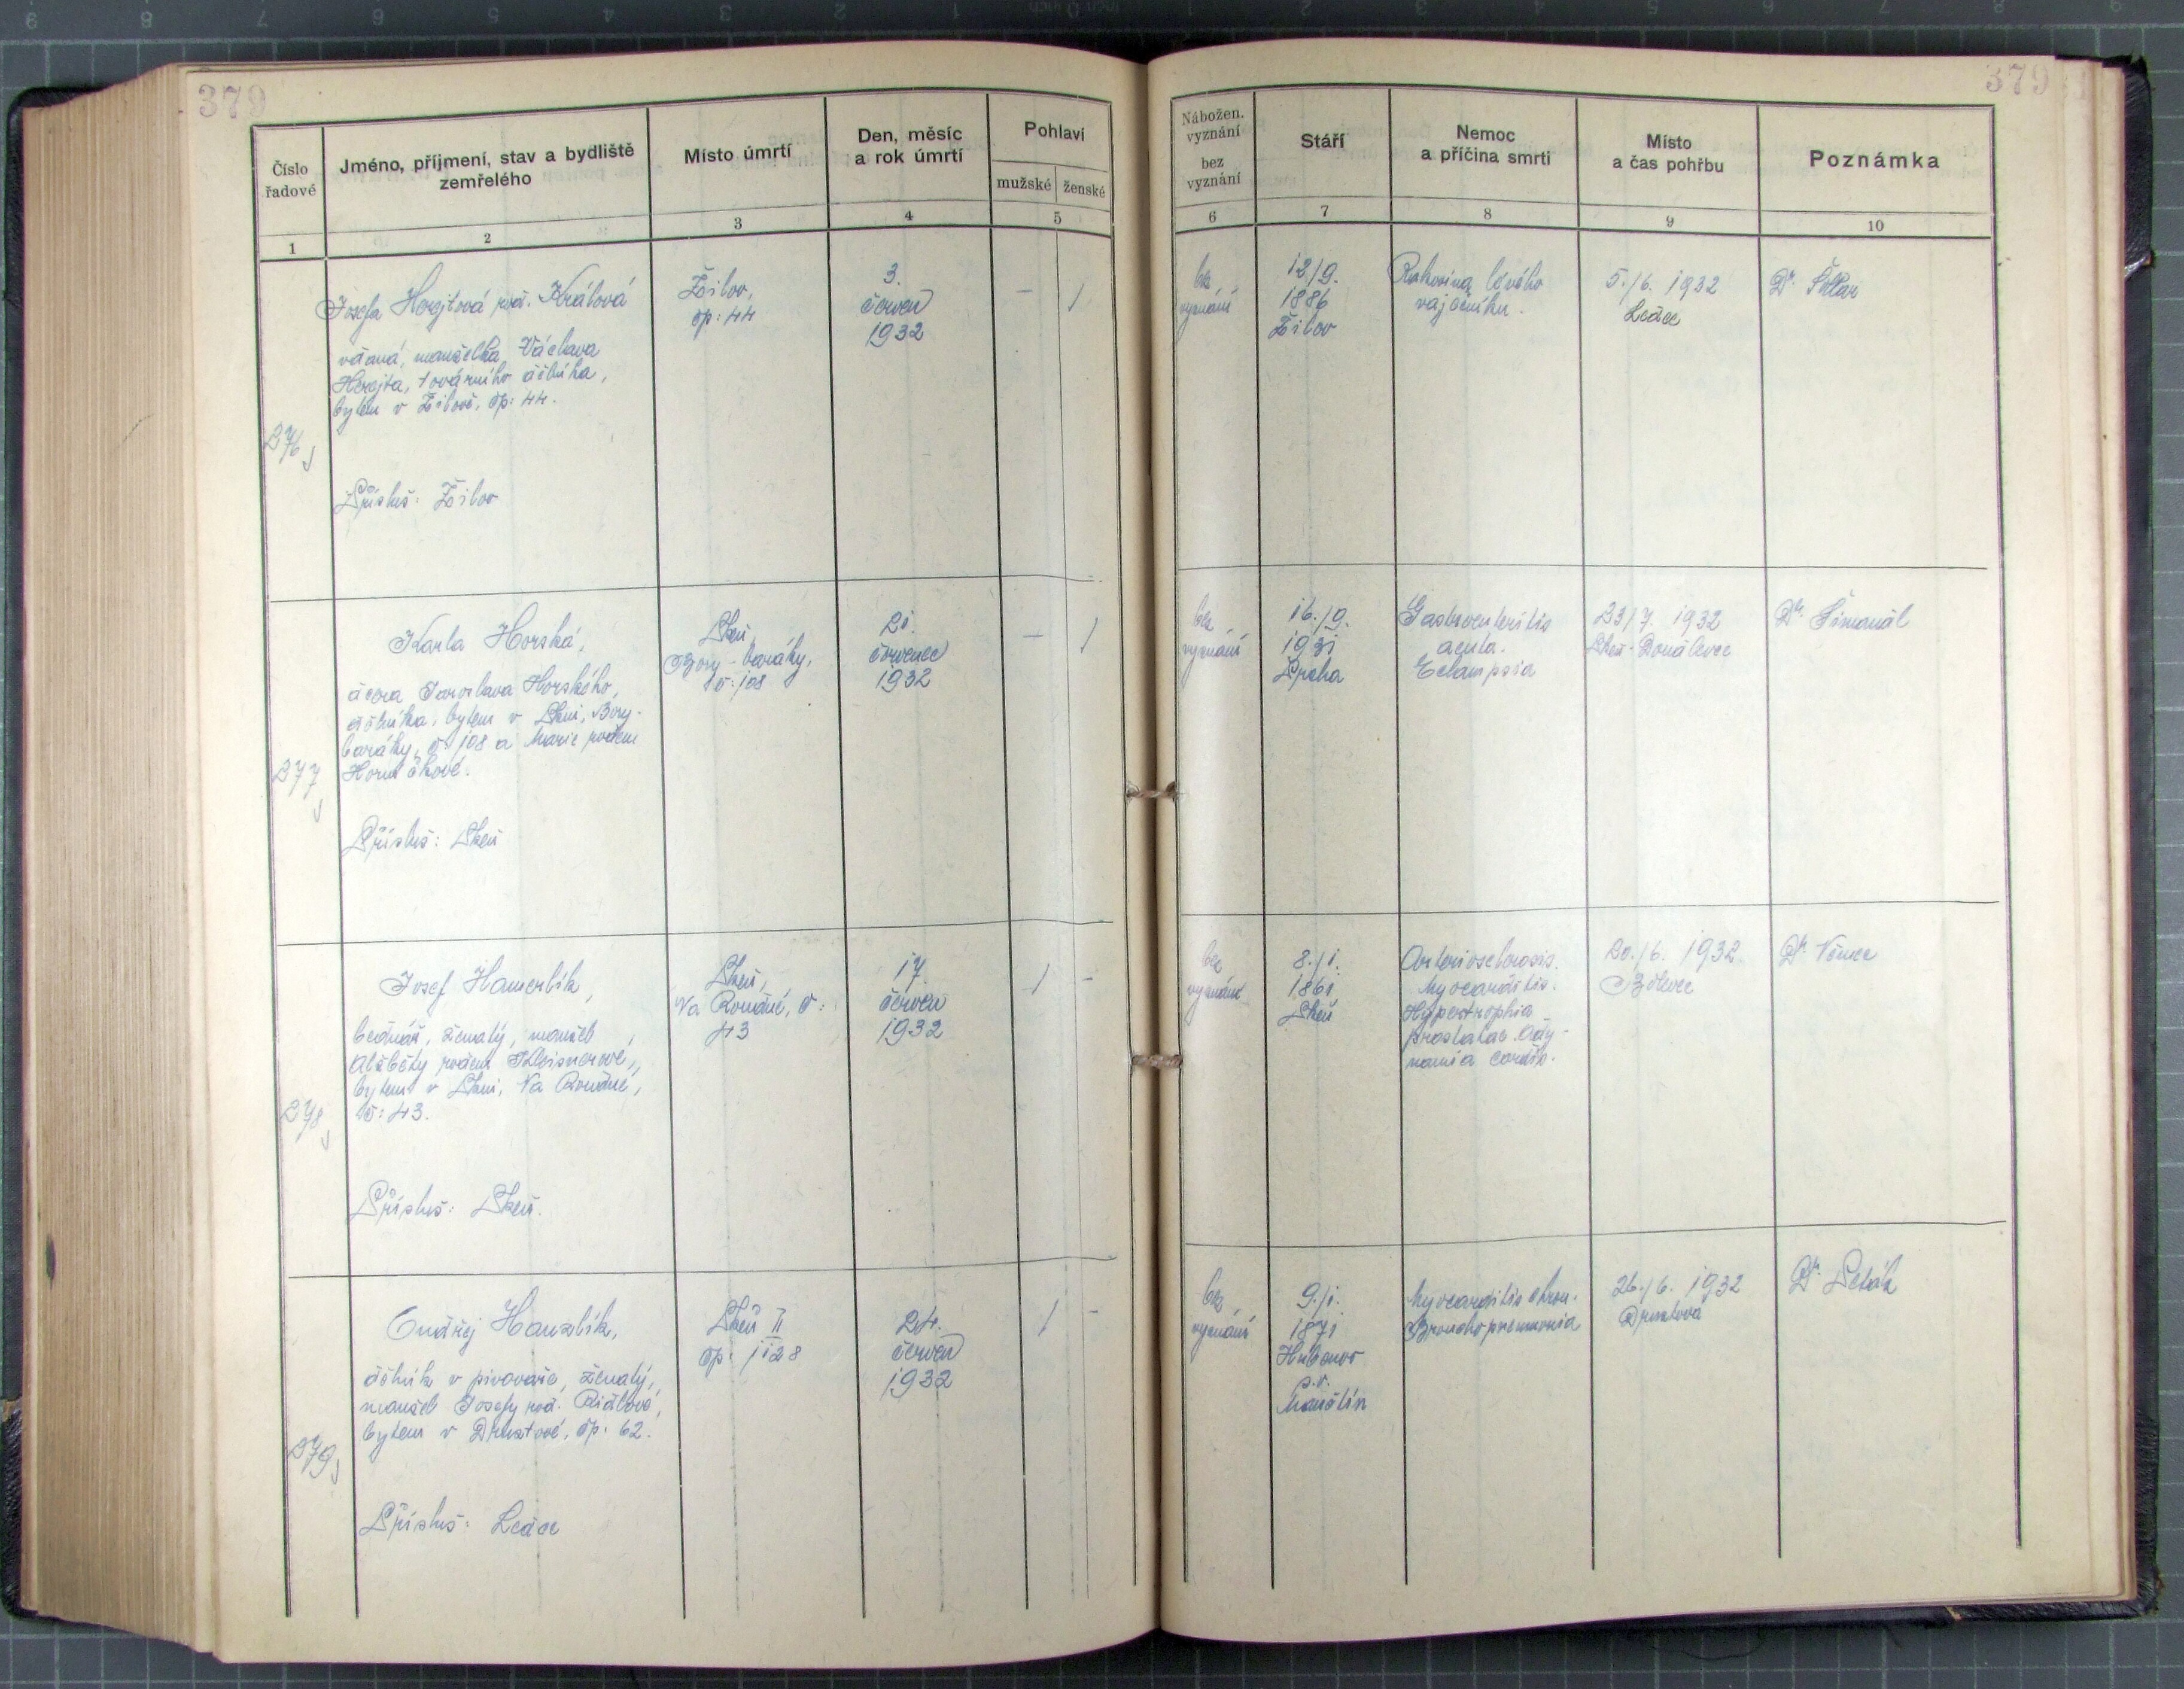 379
379
Číslo
řadové
Jméno, příjmení, stav a bydliště
zemřelého
Místo úmrtí
Den, měsíc
a rok úmrtí
Pohlaví
mužské
ženské
1
2
3
4
5
Nábožen.
vyznání
bez
vyznání
Stáří
Nemoc
a příčina smrti
Místo
a čas pohřbu
Poznámka
6
7
8
9
10
276
Josefa Hergtová roz. Králová
manželka Václava
továrního dělníka,
bytem v Žilově, čp: 44.
Přísluš: Žilov
Žilov,
čp: 44
3.
červen
1932
–
1
bez
vyznání
12/9.
1886
Žilov
Rakovina levého
vaječníku.
5./6. 1932
Ledce
Dr.
277
Karla Horská,
dcera Jaroslava Horského,
dělníka, bytem v Plzni, Bory-
baráky, č: 108 a Marie rodem
Přísluš: Plzeň
Plzeň,
Bory-baráky,
č: 108
21.
červenec
1932
–
1
bez
vyznání
16./9.
1931
Praha
Gastroenteritis
acuta.
Eclampsia
23/7. 1932
Plzeň-Doudlevce
Dr. Šimanál
278
Josef Hamerlík,
bednář, ženatý, manžel
Alžběty rozené Kleisnerové,
bytem v Plzni, Na Roudné,
č: 43.
Přísluš: Plzeň.
Plzeň,
Na Roudné, č:
43
17.
červen
1932
1
-
bez
vyznání
8./1.
1861
Plzeň
Arteriosclerosis.
Myocarditis.
Hypertrophia
prostatae. Ady-
namia cordis.
20./6. 1932.
Bolevec
Dr. Němec
279
Ondřej Hanzlík,
dělník v pivovaře, ženatý,
manžel Josefy roz.
bytem v Druztové, čp. 62.
Přísluš: Ledce
Plzeň II
čp. 1128
24.
červen
1932
1
-
bez
vyznání
9./1.
1871
Hubenov
p. v.
Manětín
Myocarditis chron.
Bronchopneumonia
26./6. 1932
Druztová
Dr.